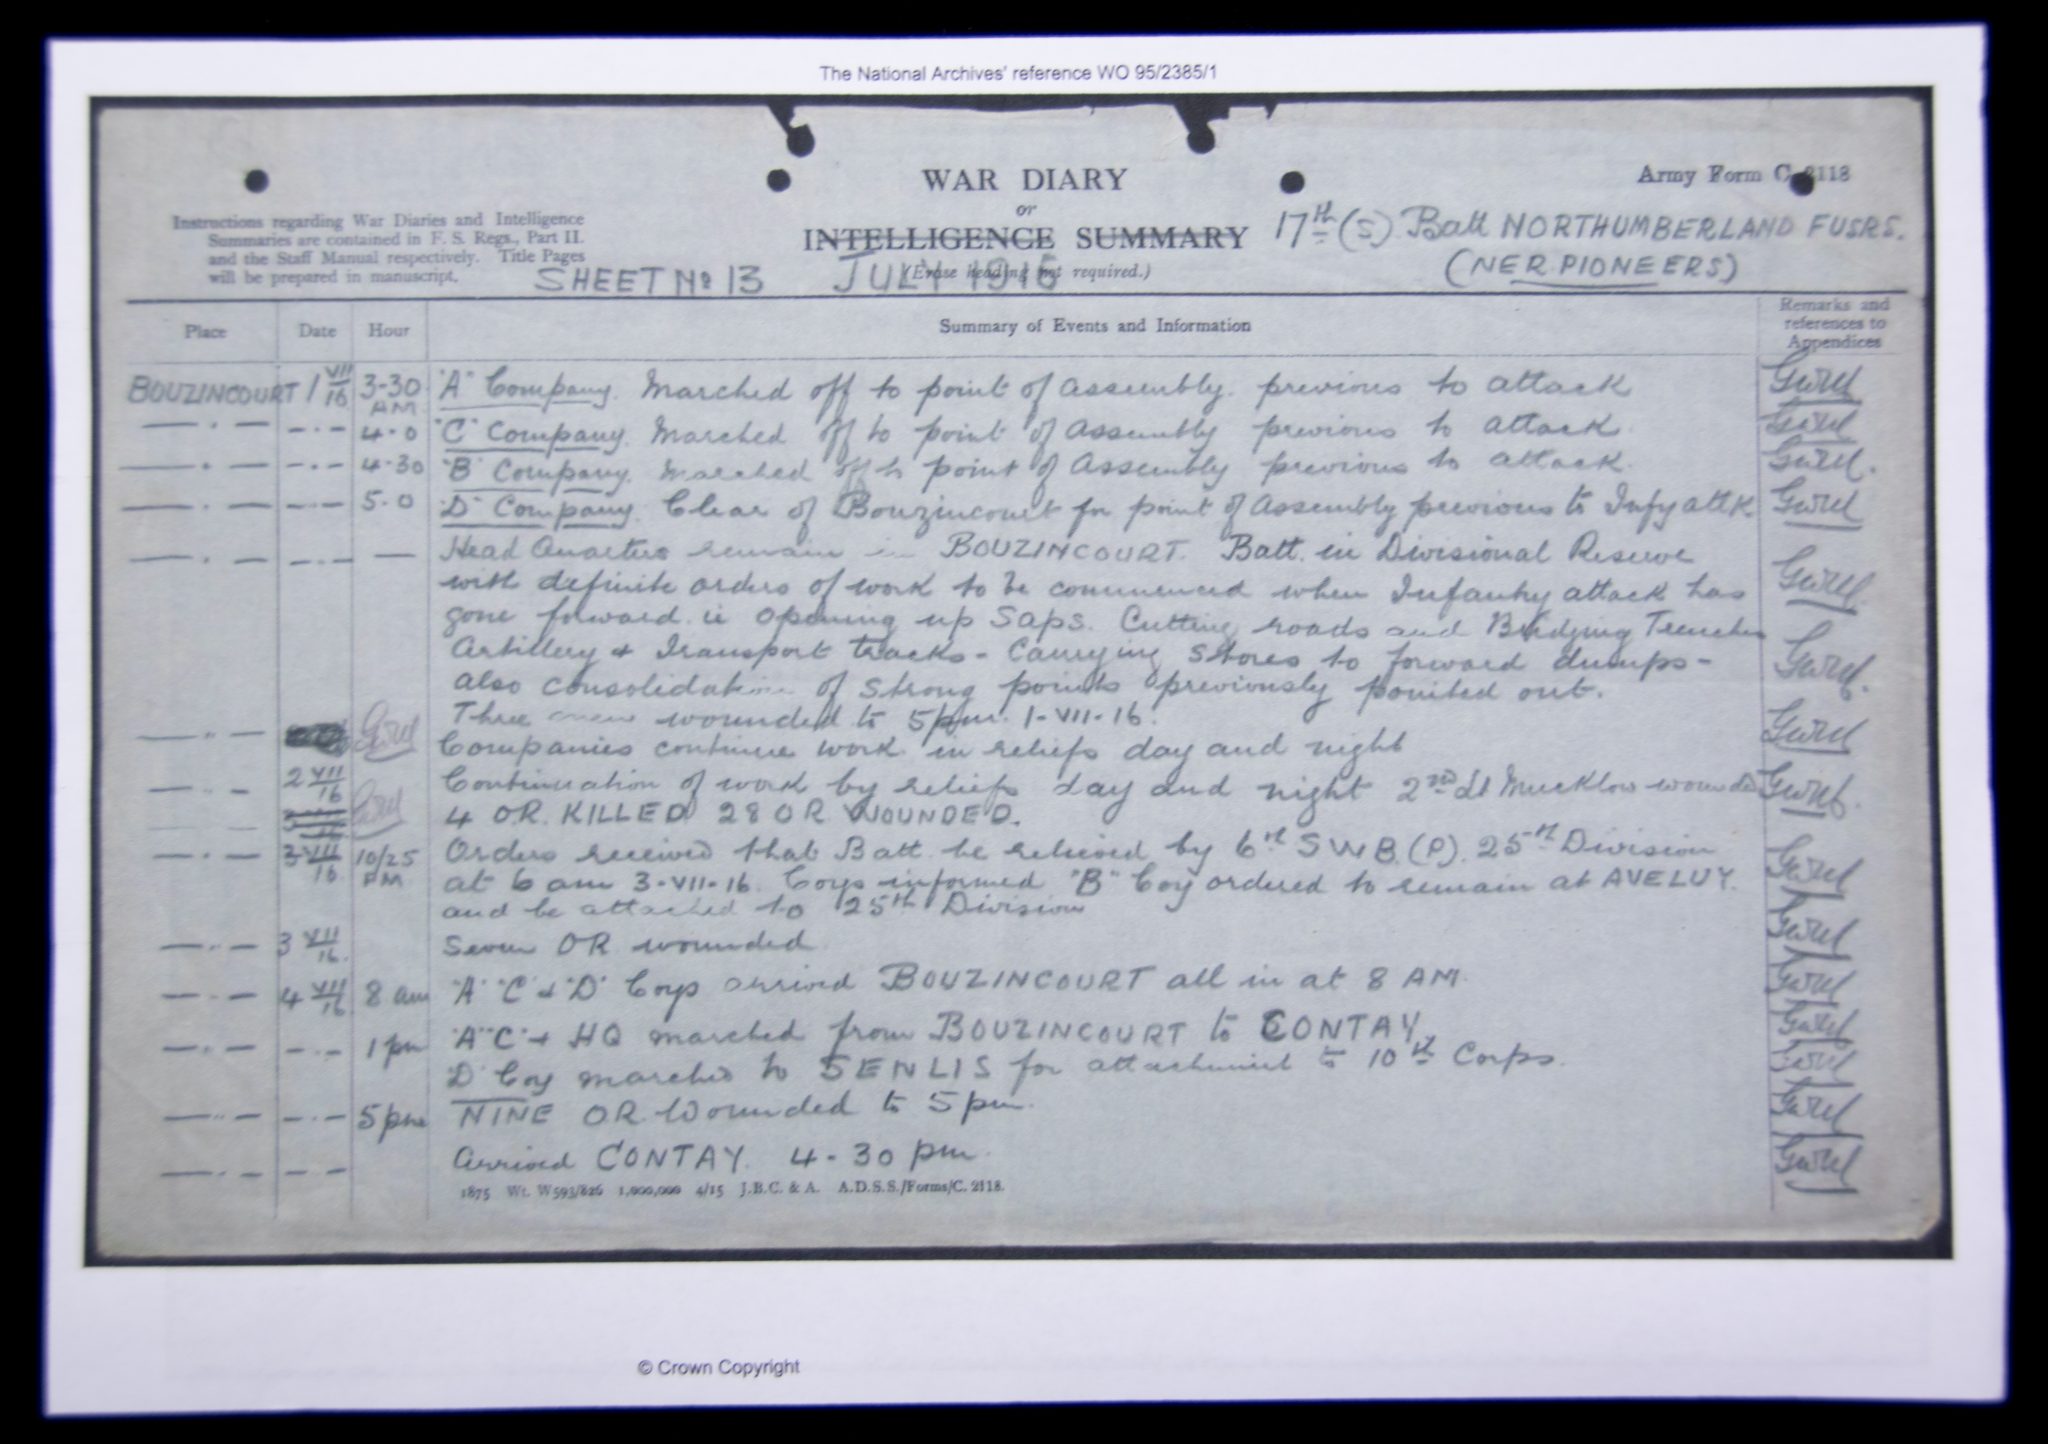 The National Archives' reference WO 95/2385/1
WAR DIARY
or
INTELLIGENCE SUMMARY
(Erase heading not required.)
Army Form C. 2118
Instructions regarding War Diaries and Intelligence
Summaries are contained in F. S. Regs., Part II.
and the Staff Manual respectively. Title Pages
will be prepared in manuscript.
SHEET No 13 JULY 1916
17th (S) Batt NORTHUMBERLAND FUSRS.
(NER PIONEERS)
Place Date Hour Summary of Events and Information Remarks and references to Appendices
BOUZINCOURT 1 VII/16 3-30 AM "A" Company. Marched off to point of assembly. previous to attack
4-0 "C" Company. Marched off to point of Assembly previous to attack.
4-30 "B" Company. Marched off to point of Assembly previous to attack.
5.0 "D" Company. Clear of Bouzincourt for point of Assembly previous to Infy attk.
Head Quarters remain in BOUZINCOURT. Batt. in Divisional Reserve
with definite orders of work to be commenced when Infantry attack has
gone forward. ie opening up Saps. Cutting roads and Bridging Trenches
Artillery & Transport tracks - Carrying stores to forward dumps -
also consolidation of strong points previously pointed out.
Three men wounded to 5pm. 1-VII-16.
Companies continue work in reliefs day and night
2 VII/16 Continuation of work by reliefs day and night 2nd Lt Mucklow wounded
4 O.R. KILLED 28 OR WOUNDED.
3 VII/16 10/25 PM Orders received that Batt. be relieved by 6th SWB.(P). 25th Division
at 6 am 3-VII-16. Coys informed "B" Coy ordered to remain at AVELUY.
and be attached to 25th Division
3 VII/16. Seven OR wounded
4 VII/16 8 am "A" "C" & "D" Coys arrived BOUZINCOURT all in at 8 AM.
1 pm "A" "C" & HQ marched from BOUZINCOURT to CONTAY.
"D" Coy marched to SENLIS for attachment to 10th Corps.
5 pm NINE OR Wounded to 5 pm.
Arrived CONTAY. 4-30 pm.
1875 Wt. W593/826 1,000,000 4/15 J.B.C. & A. A.D.S.S./Forms/C. 2118.
© Crown Copyright